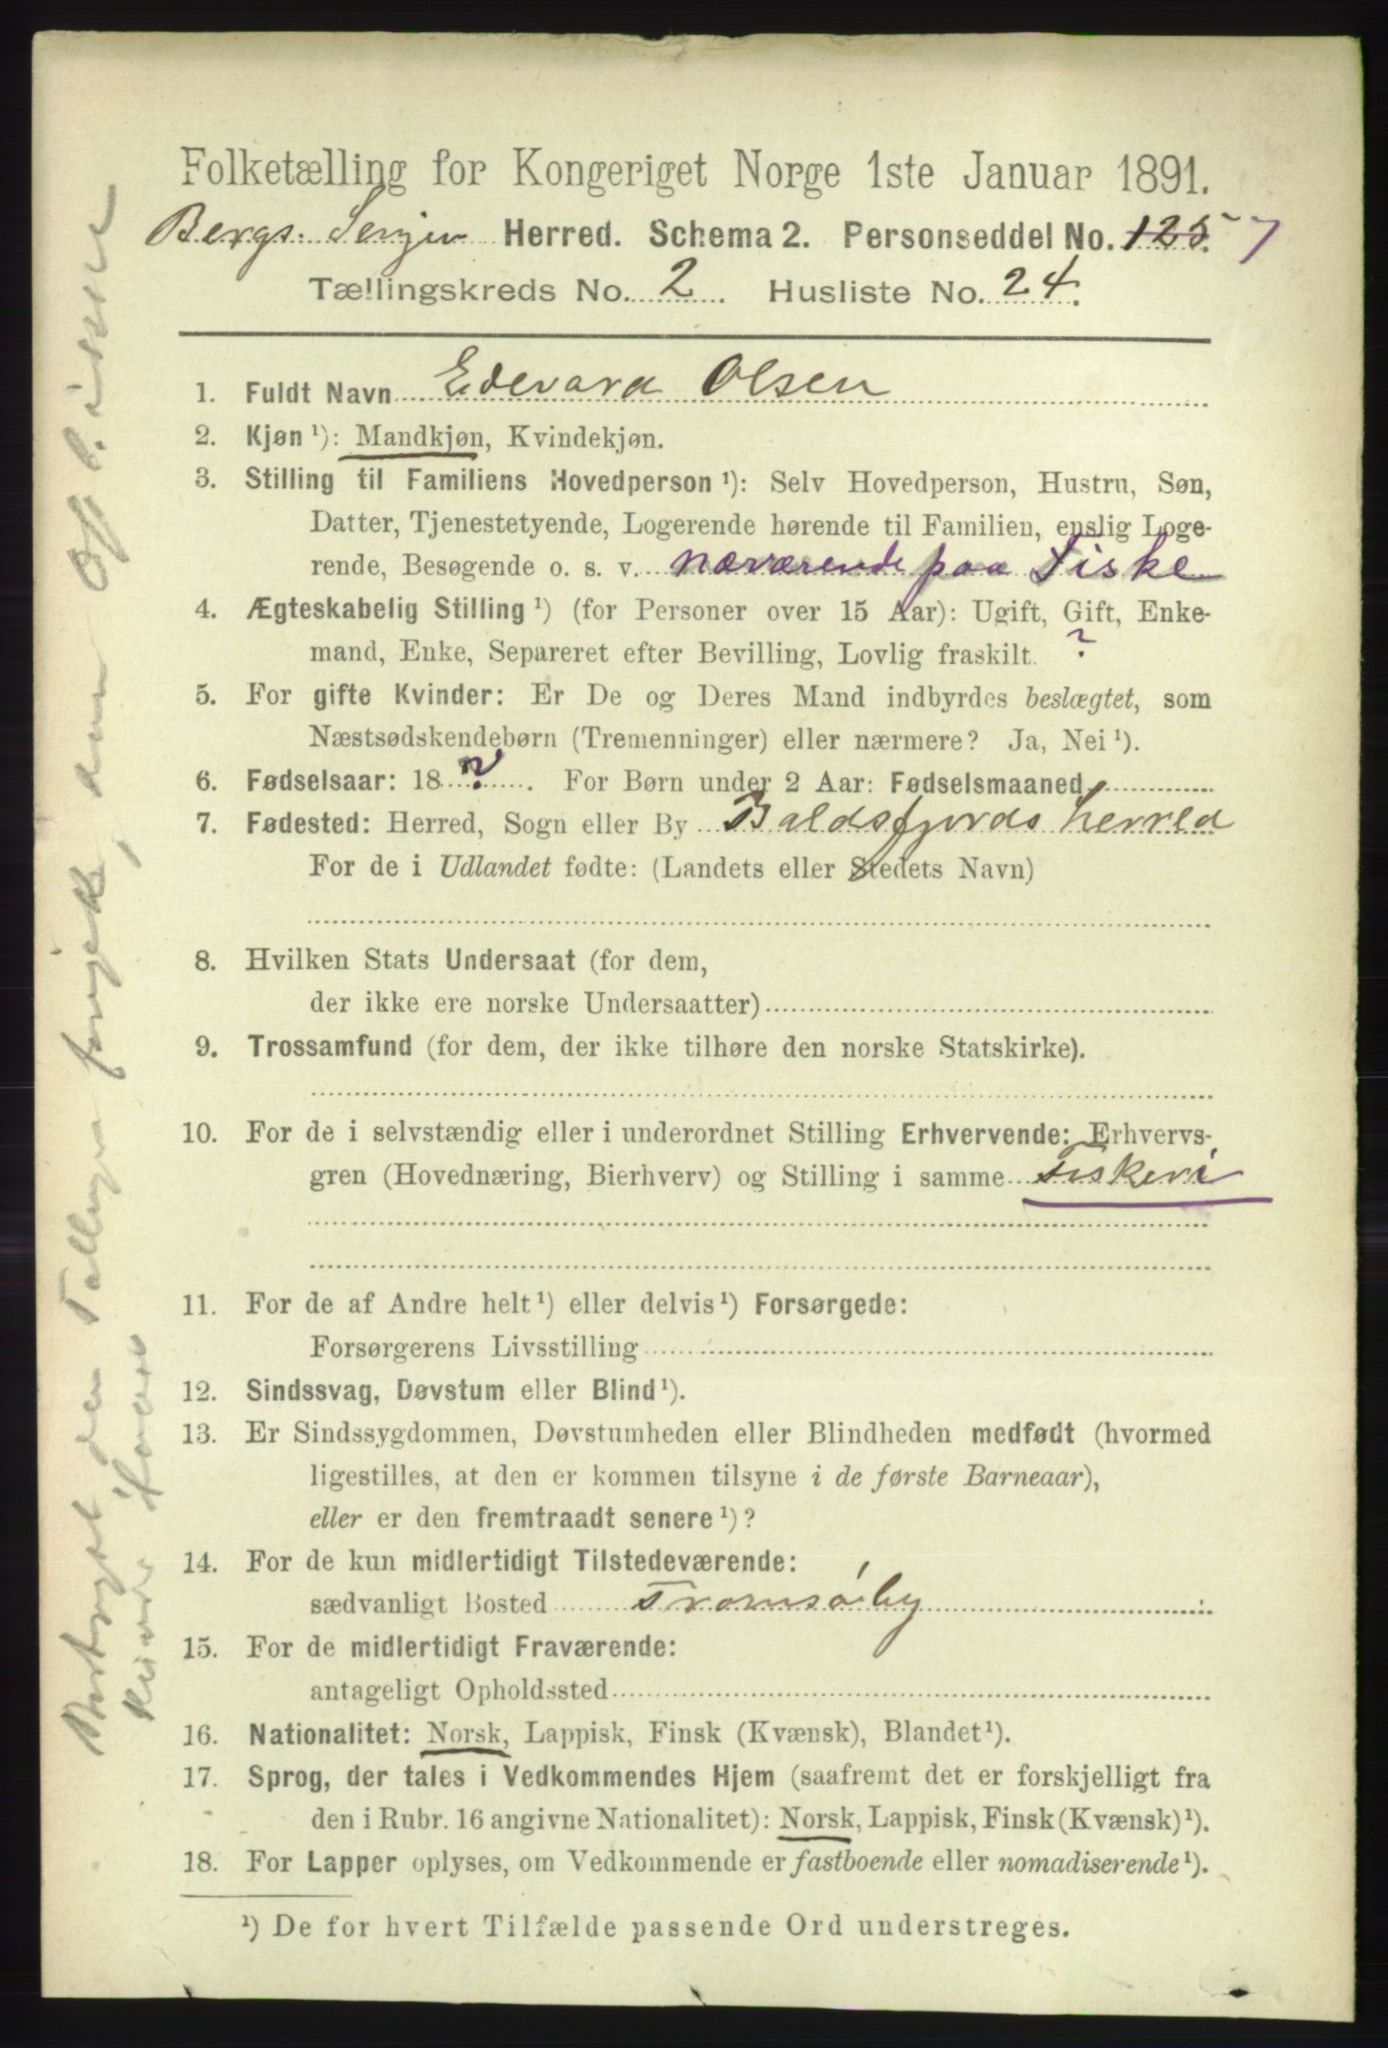 Folketælling for Kongeriget Norge 1ste Januar 1891.
Bergs. Senjen Herred. Schema 2. Personseddel No. 125. 7
Tællingskreds No. 2. Husliste No. 24.
1. Fuldt Navn Edevard Olsen
2. Kjøn ¹): Mandkjøn, Kvindekjøn.
3. Stilling til Familiens Hovedperson ¹): Selv Hovedperson, Hustru, Søn,
Datter, Tjenestetyende, Logerende hørende til Familien, enslig Loge-
rende, Besøgende o. s. v. næværende paa Fiske
4. Ægteskabelig Stilling ¹) (for Personer over 15 Aar): Ugift, Gift, Enke-
mand, Enke, Separeret efter Bevilling, Lovlig fraskilt. ?
5. For gifte Kvinder: Er De og Deres Mand indbyrdes beslægtet, som
Næstsødskendebørn (Tremenninger) eller nærmere? Ja, Nei ¹).
6. Fødselsaar: 18 ? . For Børn under 2 Aar: Fødselsmaaned
7. Fødested: Herred, Sogn eller By Baldsfjords herred
For de i Udlandet fødte: (Landets eller Stedets Navn)
8. Hvilken Stats Undersaat (for dem,
der ikke ere norske Undersaatter)
9. Trossamfund (for dem, der ikke tilhøre den norske Statskirke).
10. For de i selvstændig eller i underordnet Stilling Erhvervende: Erhvervs-
gren (Hovednæring, Bierhverv) og Stilling i samme Fiskeri
11. For de af Andre helt ¹) eller delvis ¹) Forsørgede:
Forsørgerens Livsstilling
12. Sindssvag, Døvstum eller Blind ¹).
13. Er Sindssygdommen, Døvstumheden eller Blindheden medfødt (hvormed
ligestilles, at den er kommen tilsyne i de første Barneaar),
eller er den fremtraadt senere ¹)?
14. For de kun midlertidigt Tilstedeværende:
sædvanligt Bosted Tromsø by
15. For de midlertidigt Fraværende:
antageligt Opholdssted
16. Nationalitet: Norsk, Lappisk, Finsk (Kvænsk), Blandet ¹).
17. Sprog, der tales i Vedkommendes Hjem (saafremt det er forskjelligt fra
den i Rubr. 16 angivne Nationalitet): Norsk, Lappisk, Finsk (Kvænsk) ¹).
18. For Lapper oplyses, om Vedkommende er fastboende eller nomadiserende ¹).
¹) De for hvert Tilfælde passende Ord understreges.